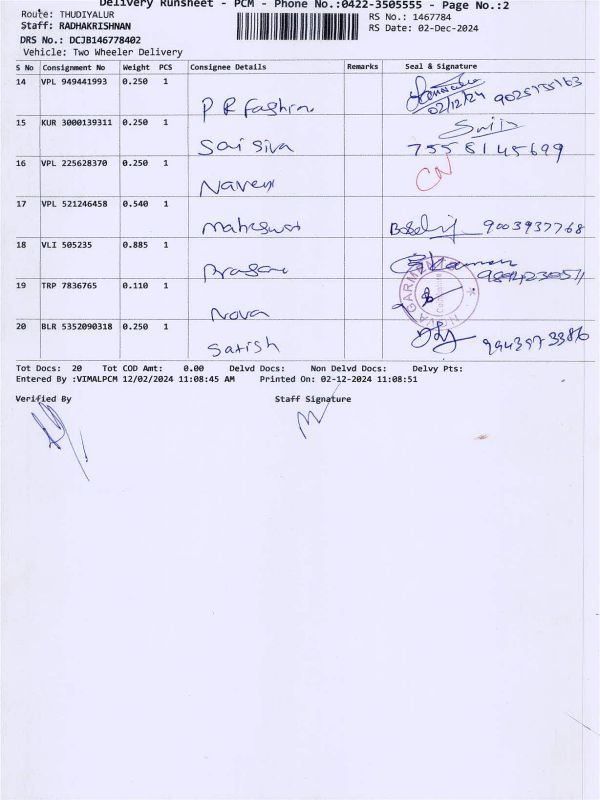 Delivery Runsheet - PCM - Phone No.:0422-3505555 - Page No.:2
Route: THUDIYALUR
RS No.: 1467784
Staff: RADHAKRISHNAN
RS Date: 02-Dec-2024
DRS No.: DCJB146778402
Vehicle: Two Wheeler Delivery
S No Consignment No Weight PCS Consignee Details Remarks Seal & Signature
14 VPL 949441993 0.250 1
P R Fashion 02/12/24
15 KUR 3000139311 0.250 1
Sai Siva 7558145699
16 VPL 225628370 0.250 1
Naveen CN
17 VPL 521246458 0.540 1
Maheswari 9003937768
18 VLI 505235 0.885 1
19 TRP 7836765 0.110 1
Nova
20 BLR 5352090318 0.250 1
Satish
Tot Docs: 20 Tot COD Amt: 0.00 Delvd Docs: Non Delvd Docs: Delvy Pts:
Entered By :VIMALPCM 12/02/2024 11:08:45 AM Printed On: 02-12-2024 11:08:51
Verified By Staff Signature